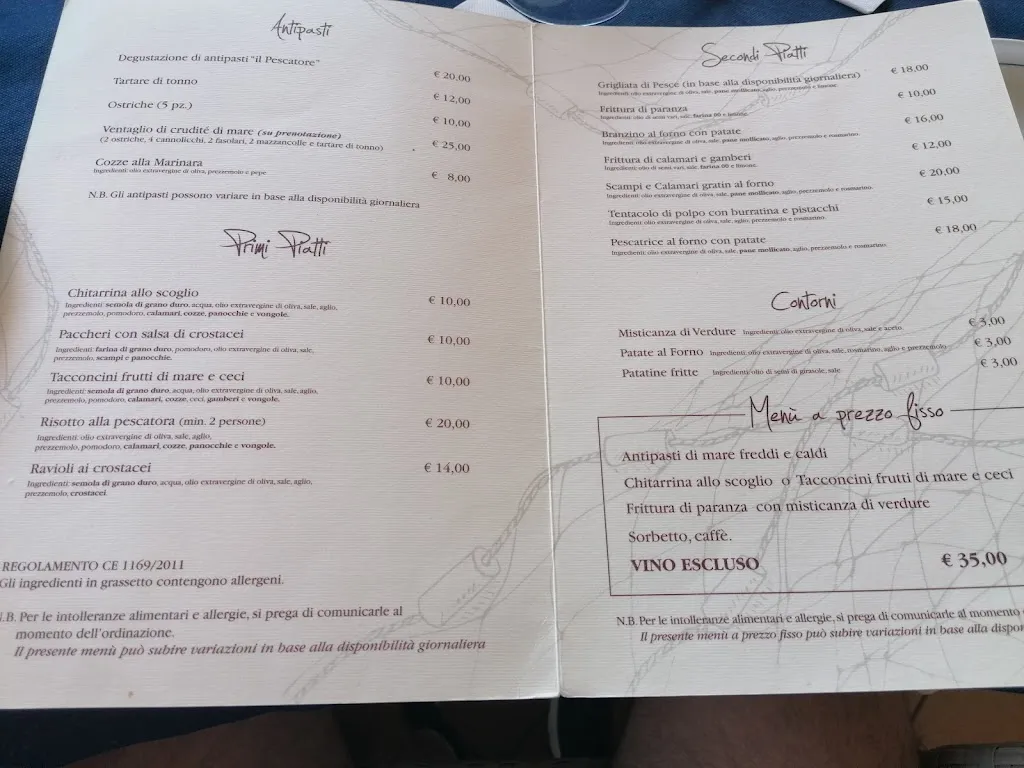 Antipasti
Degustazione di antipasti "il Pescatore" € 20,00
Tartare di tonno € 12,00
Ostriche (5 pz.) € 10,00
Ventaglio di crudité di mare (su prenotazione) € 25,00
(2 ostriche, 4 cannolicchi, 2 fasolari, 2 mazzancolle e tartare di tonno)
Cozze alla Marinara € 8,00
Ingredienti: olio extravergine di oliva, prezzemolo e pepe
N.B. Gli antipasti possono variare in base alla disponibilità giornaliera
Primi Piatti
Chitarrina allo scoglio € 10,00
Ingredienti: semola di grano duro, acqua, olio extravergine di oliva, sale, aglio,
prezzemolo, pomodoro, calamari, cozze, panocchie e vongole.
Paccheri con salsa di crostacei € 10,00
Ingredienti: farina di grano duro, pomodoro, olio extravergine di oliva, sale,
prezzemolo, scampi e panocchie.
Tacconcini frutti di mare e ceci € 10,00
Ingredienti: semola di grano duro, acqua, olio extravergine di oliva, sale, aglio,
prezzemolo, pomodoro, calamari, cozze, ceci, gamberi e vongole.
Risotto alla pescatora (min. 2 persone) € 20,00
Ingredienti: olio extravergine di oliva, sale, aglio,
prezzemolo, pomodoro, calamari, cozze, panocchie e vongole.
Ravioli ai crostacei € 14,00
Ingredienti: semola di grano duro, acqua, olio extravergine di oliva, sale, aglio,
prezzemolo, crostacei.
REGOLAMENTO CE 1169/2011
Gli ingredienti in grassetto contengono allergeni.
N.B. Per le intolleranze alimentari e allergie, si prega di comunicarle al
momento dell'ordinazione.
Il presente menù può subire variazioni in base alla disponibilità giornaliera
Secondi Piatti
Grigliata di Pesce (in base alla disponibilità giornaliera) € 18,00
Ingredienti: olio extravergine di oliva, sale, pane mollicato, aglio, prezzemolo e limone.
Frittura di paranza € 10,00
Ingredienti: olio di semi vari, sale, farina 00 e limone.
Branzino al forno con patate € 16,00
Ingredienti: olio extravergine di oliva, sale, pane mollicato, aglio, prezzemolo e rosmarino.
Frittura di calamari e gamberi € 12,00
Ingredienti: olio di semi vari, sale, farina 00 e limone.
Scampi e Calamari gratin al forno € 20,00
Ingredienti: olio extravergine di oliva, sale, pane mollicato, aglio, prezzemolo e rosmarino.
Tentacolo di polpo con burratina e pistacchi € 15,00
Ingredienti: olio extravergine di oliva, sale, aglio, prezzemolo e rosmarino.
Pescatrice al forno con patate € 18,00
Ingredienti: olio extravergine di oliva, sale, pane mollicato, aglio, prezzemolo e rosmarino.
Contorni
Misticanza di Verdure Ingredienti: olio extravergine di oliva, sale e aceto. € 3,00
Patate al Forno Ingredienti: olio extravergine di oliva, sale, rosmarino, aglio e prezzemolo € 3,00
Patatine fritte Ingredienti: olio di semi di girasole, sale € 3,00
Menù a prezzo fisso
Antipasti di mare freddi e caldi
Chitarrina allo scoglio o Tacconcini frutti di mare e ceci
Frittura di paranza con misticanza di verdure
Sorbetto, caffè.
VINO ESCLUSO € 35,00
N.B. Per le intolleranze alimentari e allergie, si prega di comunicarle al momento
Il presente menù a prezzo fisso può subire variazioni in base alla